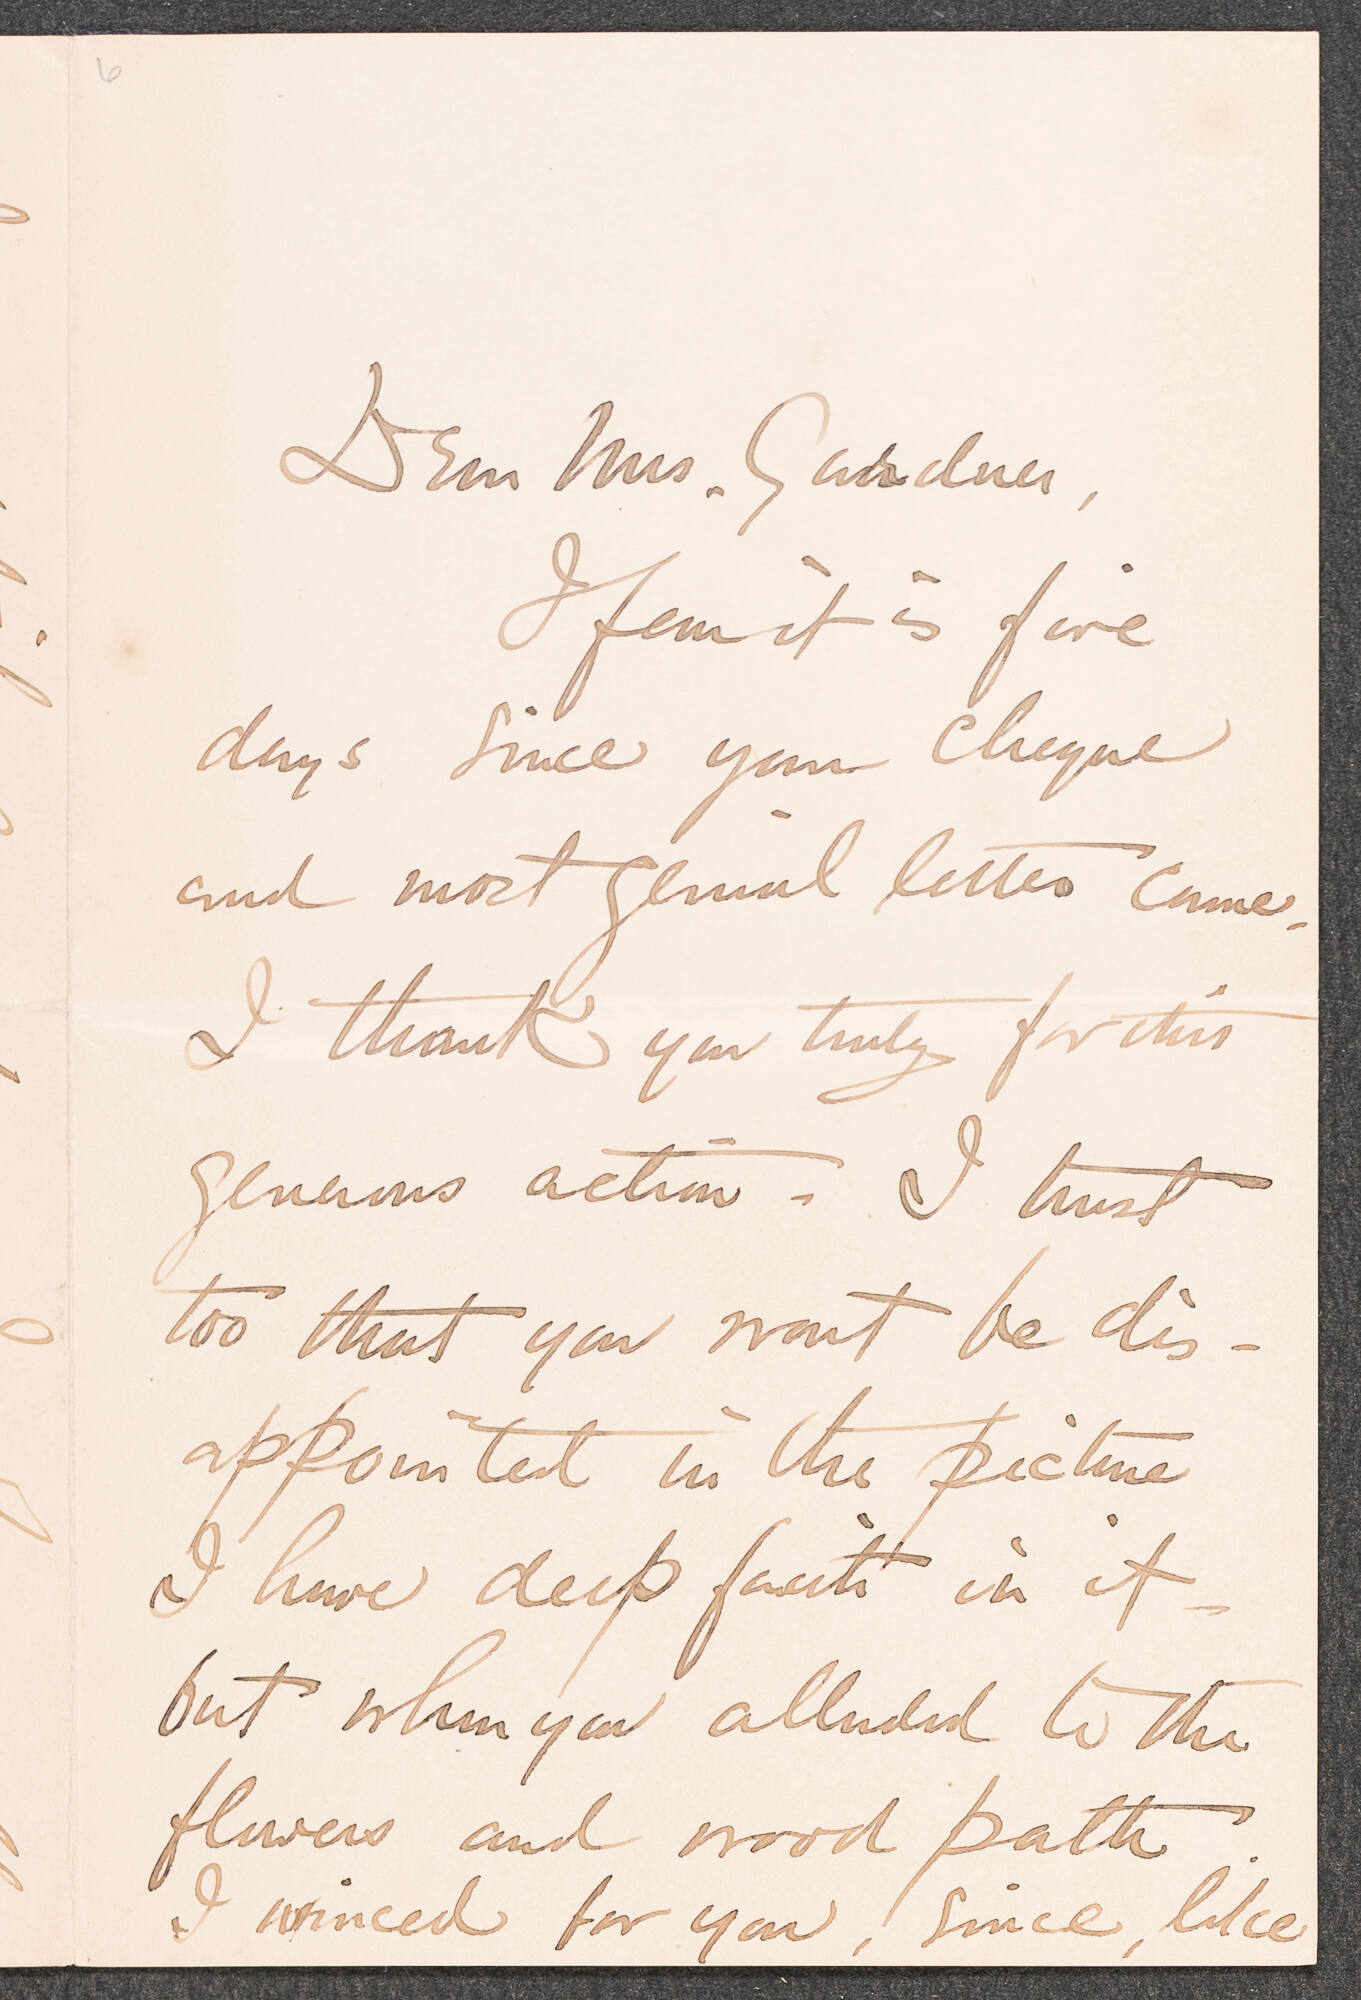 6
Dear Mrs. Gardner,
I fear it is five
days since your cheque
and most genial letter came.
I thank you truly for this
generous action - I trust
too that you wont be dis-
appointed in the picture
I have deep faith in it -
but when you alluded to the
flowers and wood path.
I winced for you, since, like